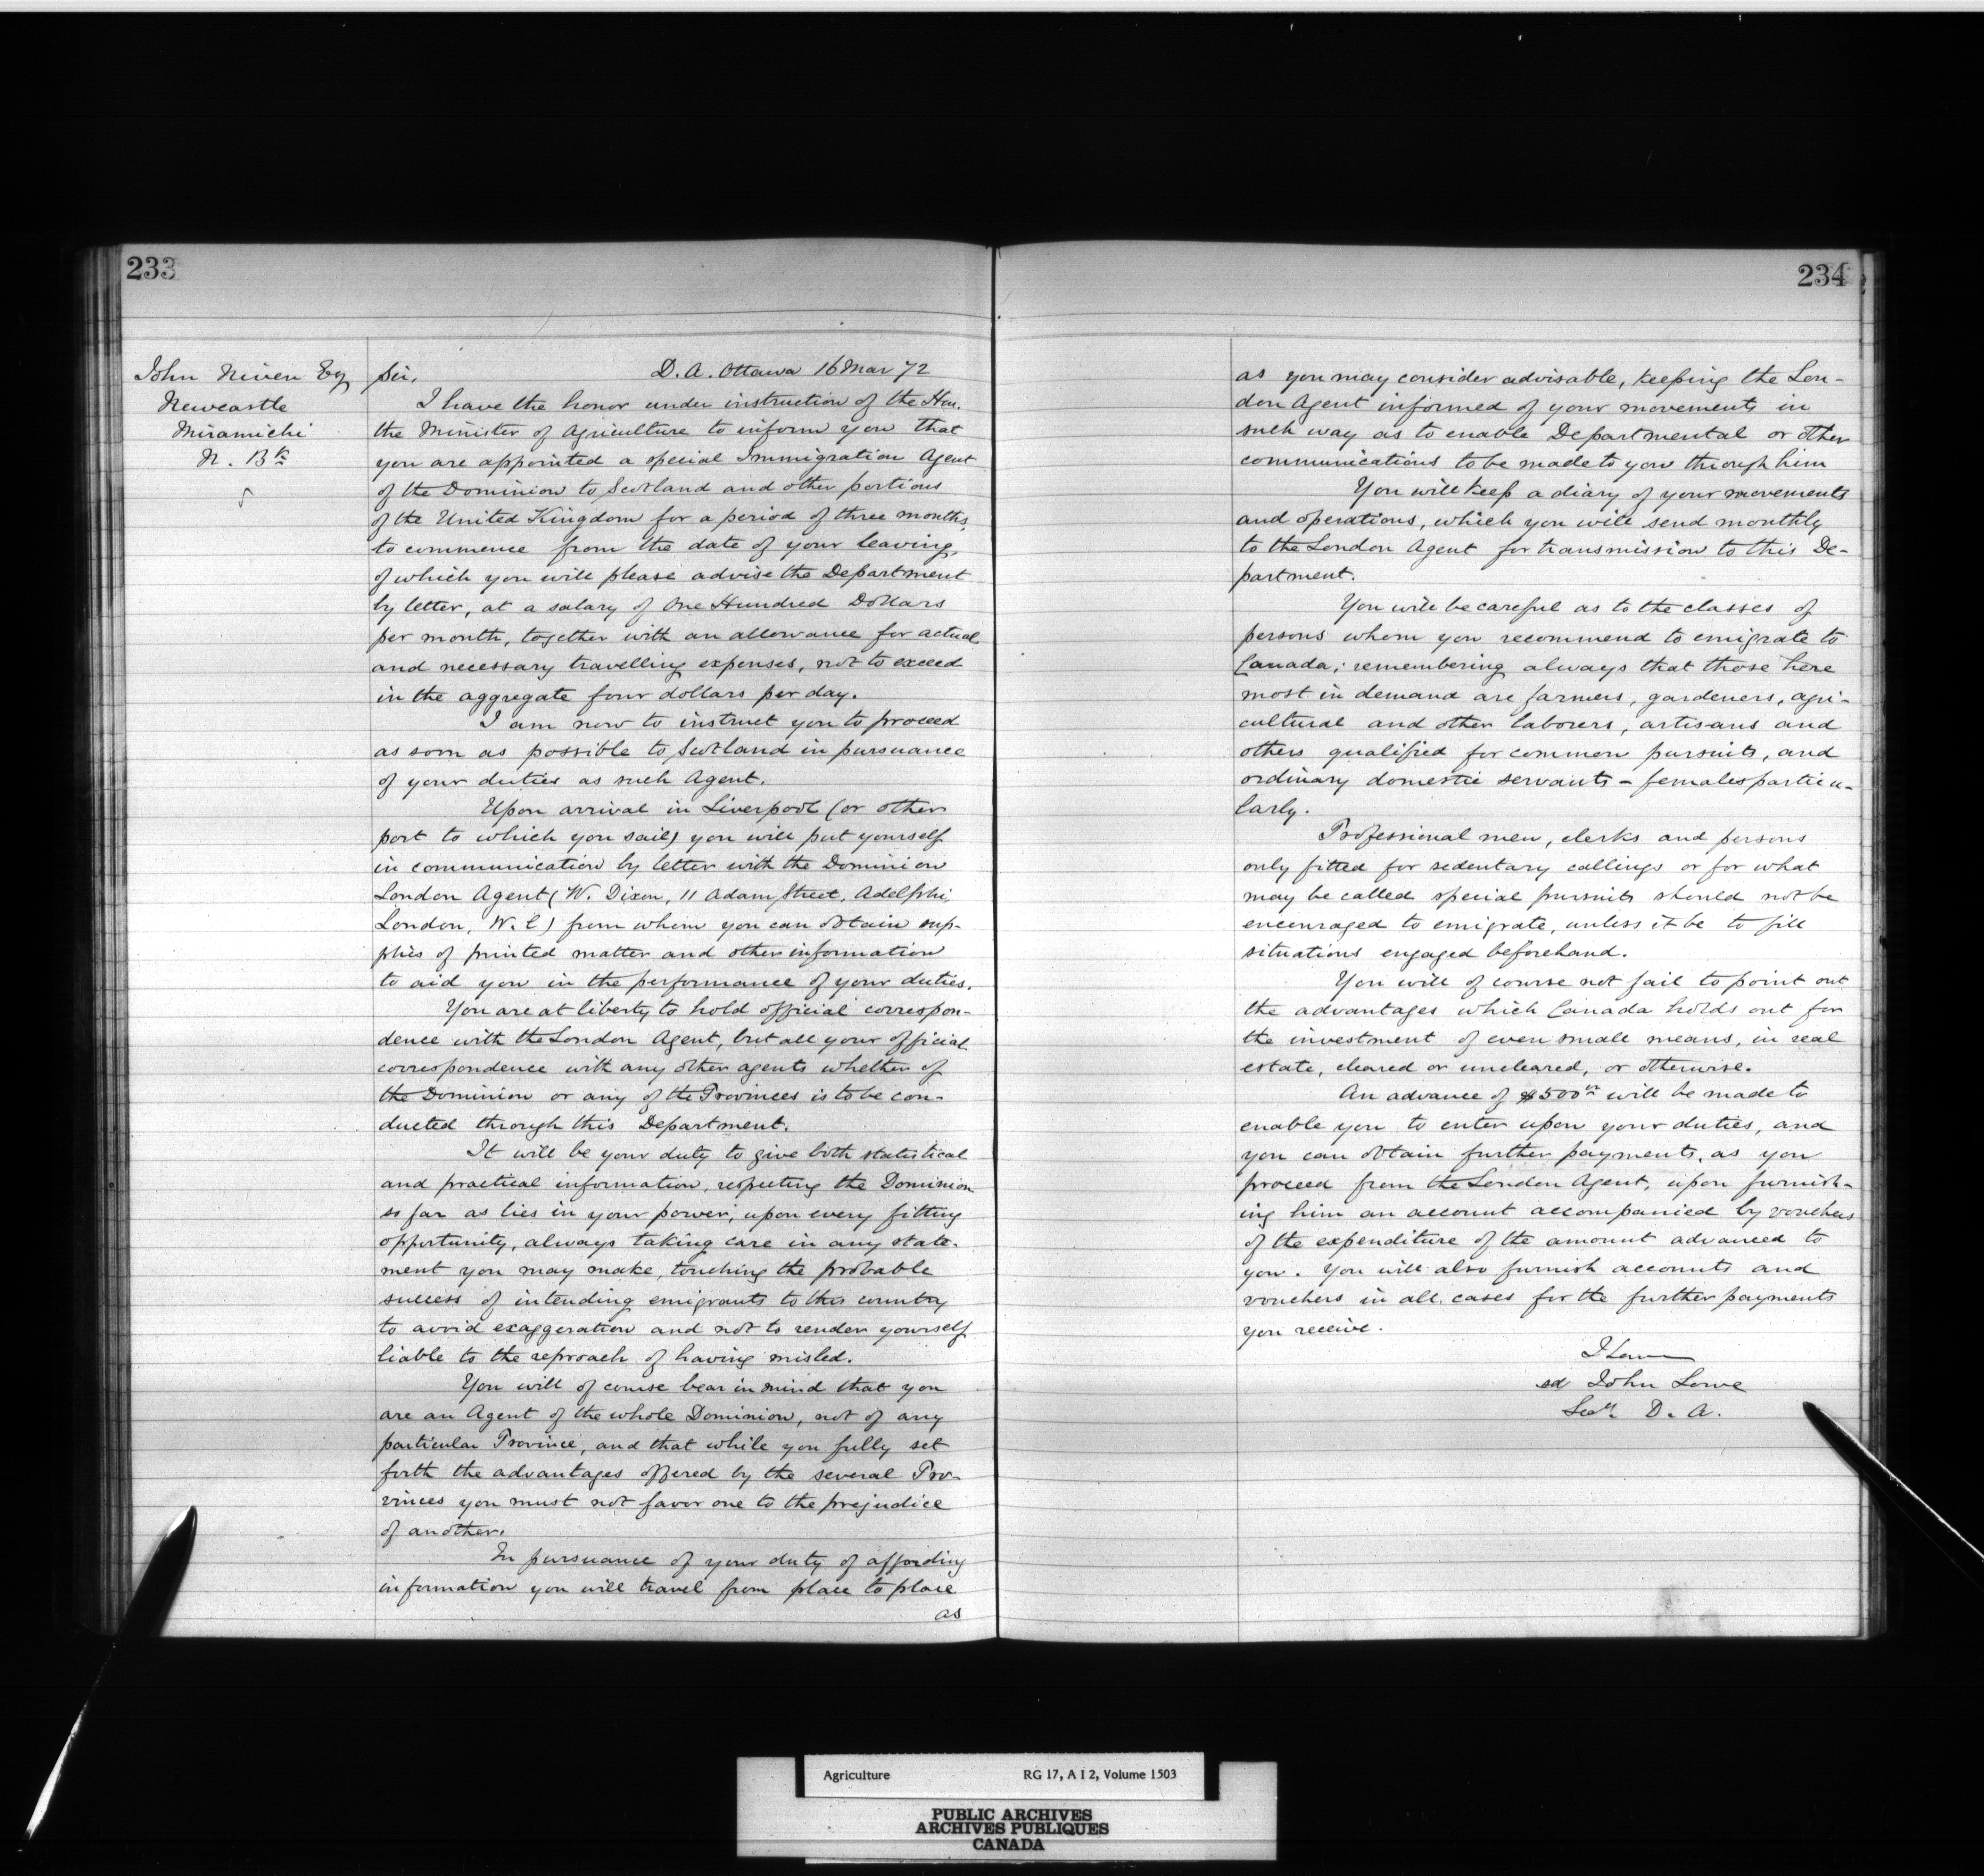 233
John Niven Esq
Newcastle
Miramichi
N. Bk
Sir, D. A. Ottawa 16 Mar 72
I have the honor under instruction of the Hon.
the Minister of Agriculture to inform you that
you are appointed a special Immigration Agent
of the Dominion to Scotland and other portions
of the United Kingdom for a period of three months,
to commence from the date of your leaving,
of which you will please advise the Department
by letter, at a salary of One Hundred Dollars
per month, together with an allowance for actual
and necessary travelling expenses, not to exceed
in the aggregate four dollars per day.
I am now to instruct you to proceed
as soon as possible to Scotland in pursuance
of your duties as such Agent.
Upon arrival in Liverpool (or other
port to which you sail) you will put yourself
in communication by letter with the Dominion
London Agent (W. Dixon, 11 Adam Street, Adelphi,
London, W. C) from whom you can obtain sup-
plies of printed matter and other information
to aid you in the performance of your duties.
You are at liberty to hold official correspon-
dence with the London Agent, but all your official
correspondence with any other agents whether of
the Dominion or any of the Provinces is to be con-
ducted through this Department.
It will be your duty to give both statistical
and practical information, respecting the Dominion
so far as lies in your power, upon every fitting
opportunity, always taking care in any state-
ment you may make, touching the probable
success of intending emigrants to this country
to avoid exaggeration and not to render yourself
liable to the reproach of having misled.
You will of course bear in mind that you
are an Agent of the whole Dominion, not of any
particular Province, and that while you fully set
forth the advantages offered by the several Pro-
vinces you must not favor one to the prejudice
of another.
In pursuance of your duty of affording
information you will travel from place to place
as
234
as you may consider advisable, keeping the Lon-
don Agent informed of your movements in
such way as to enable Departmental or other
communications to be made to you through him
You will keep a diary of your movements
and operations, which you will send monthly
to the London Agent for transmission to this De-
partment.
You will be careful as to the classes of
persons whom you recommend to emigrate to
Canada; remembering always that those here
most in demand are farmers, gardeners, agri-
cultural and other laborers, artisans and
others qualified for common pursuits, and
ordinary domestic servants - females particu-
larly.
Professional men, clerks and persons
only fitted for sedentary callings or for what
may be called special pursuits should not be
encouraged to emigrate, unless it be to fill
situations engaged beforehand.
You will of course not fail to point out
the advantages which Canada holds out for
the investment of even small means, in real
estate, cleared or uncleared, or otherwise.
An advance of $500 will be made to
enable you to enter upon your duties, and
you can obtain further payments, as you
proceed from the London Agent, upon furnish-
ing him an account accompanied by vouchers
of the expenditure of the amount advanced to
you. You will also furnish accounts and
vouchers in all cases for the further payments
you receive.
I have
sd John Lowe
Secy. D. A.
Agriculture RG 17, A I 2, Volume 1503
PUBLIC ARCHIVES
ARCHIVES PUBLIQUES
CANADA